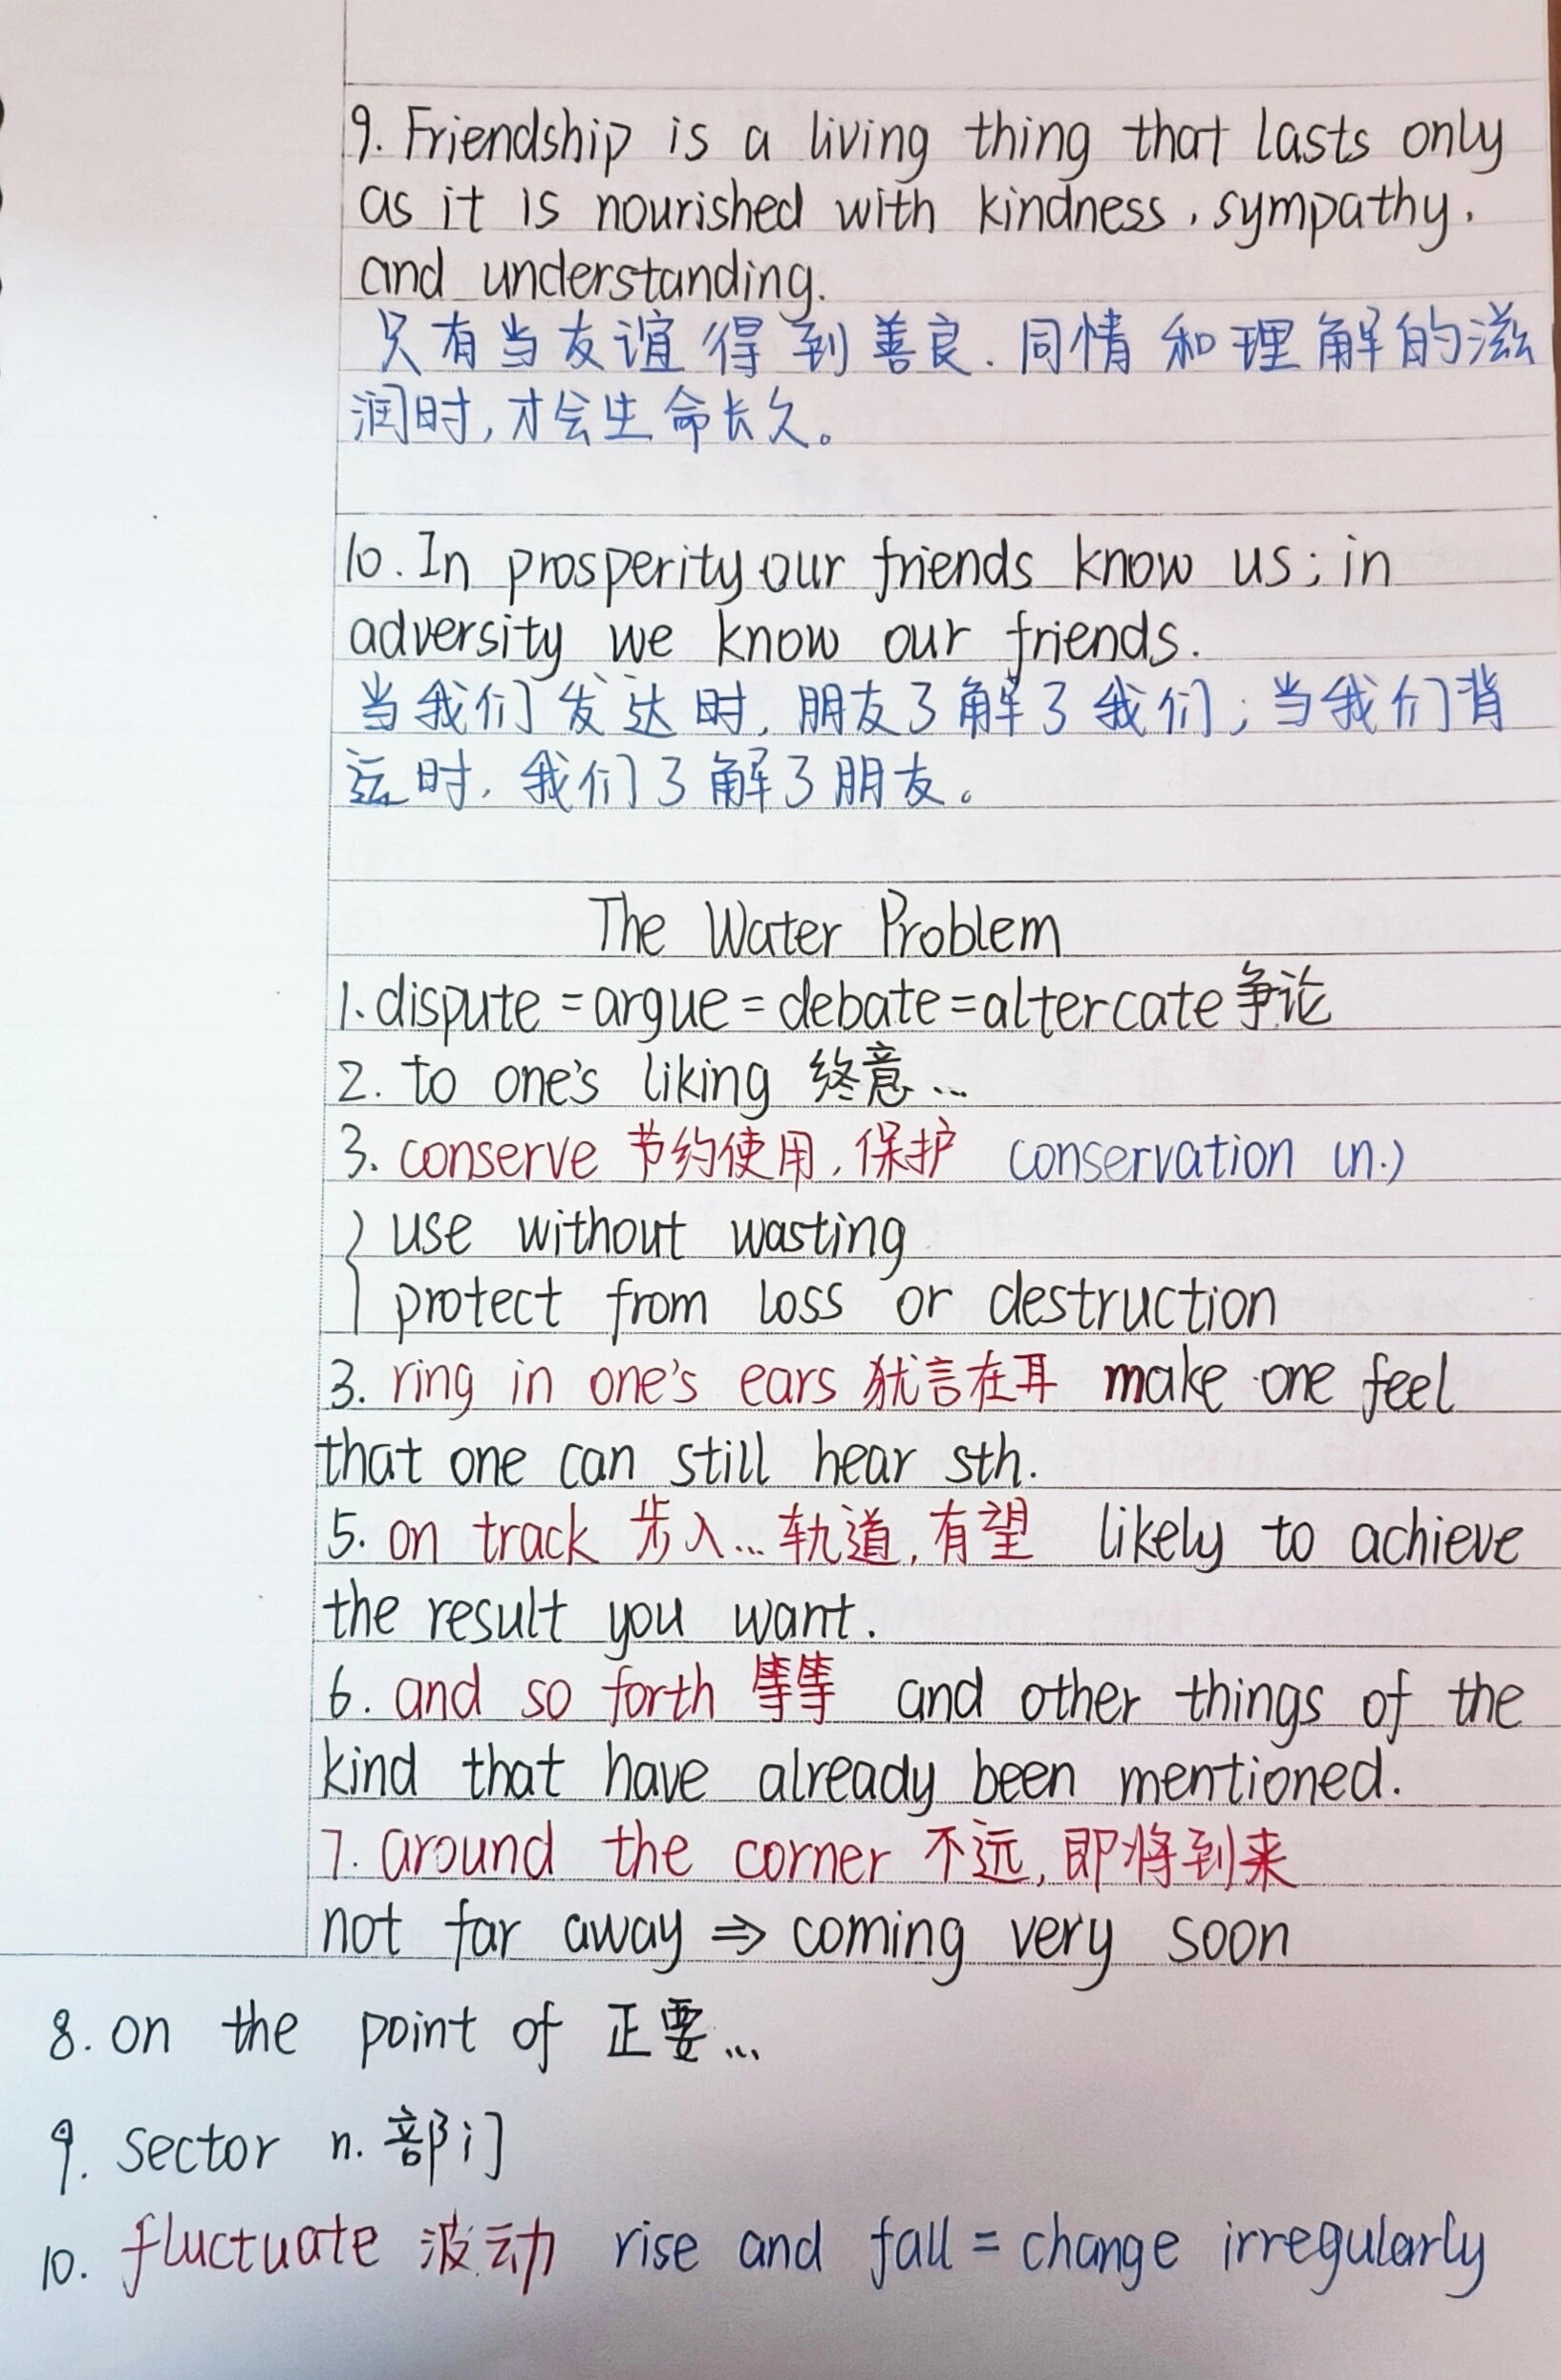 9. Friendship is a living thing that lasts only
as it is nourished with kindness, sympathy,
and understanding.
只有当友谊得到善良.同情和理解的滋
润时,才会生命长久。
10. In prosperity our friends know us; in
adversity we know our friends.
当我们发达时,朋友了解了我们;当我们背
运时,我们了解了朋友。
The Water Problem
1. dispute = argue = debate = altercate 争论
2. to one's liking 终意...
3. conserve 节约使用,保护 conservation (n.)
use without wasting
protect from loss or destruction
3. ring in one's ears 犹言在耳 make one feel
that one can still hear sth.
5. on track 步入...轨道,有望 likely to achieve
the result you want.
6. and so forth 等等 and other things of the
kind that have already been mentioned.
7. around the corner 不远,即将到来
not far away ⇒ coming very soon
8. on the point of 正要...
9. sector n. 部门
10. fluctuate 波动 rise and fall = change irregularly